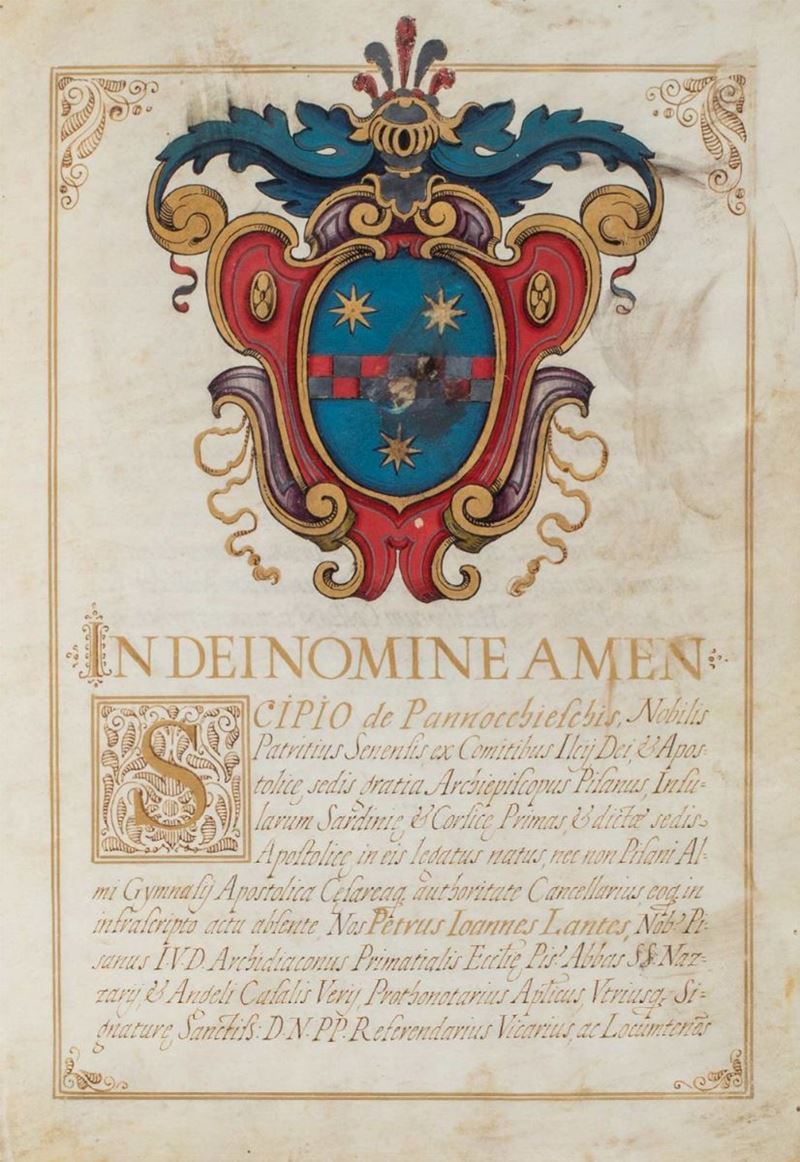 IN DEI NOMINE AMEN
SCIPIO de Pannocchieſchis, Nobilis
Patritius Senenſis ex Comitibus Ilcij Dei, & Apos-
tolicę sedis gratia Archiepiſcopus Piſanus, Inſu-
larum Sardinię, & Corſicę Primas, & dictæ sedis
Apoſtolicę in eis legatus natus, nec non Piſani Al-
mi Gymnaſij Apostolica Cęſareaq, authoritate Cancellarius, eoq, in
infraſcripto actu abſente Nos Petrus Ioannes Lantes, Nob.s Pi-
sanus I.V.D. Archidiaconus Primatialis Eccłię Pis.ę Abbas SS. Naz-
zarij, & Angeli Caſalis Verij, Prothonotarius Aplicus, Vtriusq, Si-
gnaturę Sanctiſs: D. N. PP. Referendarius Vicarius, ac Locumtenẽs